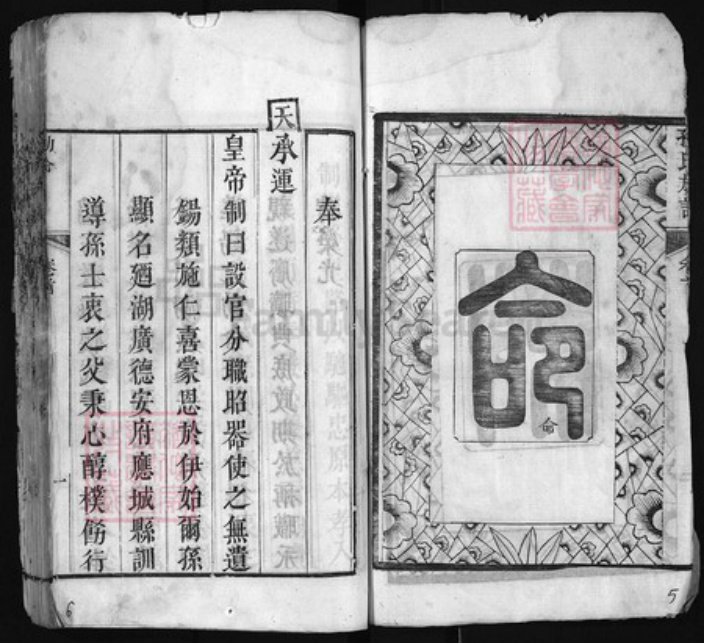 命
命
5
奉
天承運
皇帝制曰設官分職昭器使之無遺
錫類施仁喜蒙恩於伊始爾孫
顯名廼湖廣德安府應城縣訓
導孫士衷之父秉心醇樸飭行
一
6